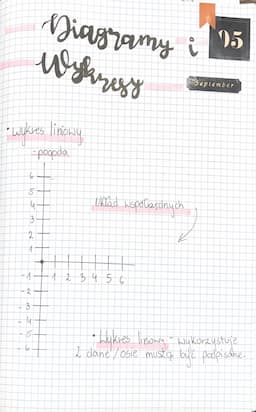 Diagramy i
Wykresy
05
September
• Wykres liniowy
- pogoda
Układ współrzędnych
6
5
4
3
2
1
-1 1 2 3 4 5 6
-2
-3
-4
-5
-6
• Wykres liniowy - wykorzystuje
2 dane/osie muszą być podpisane.